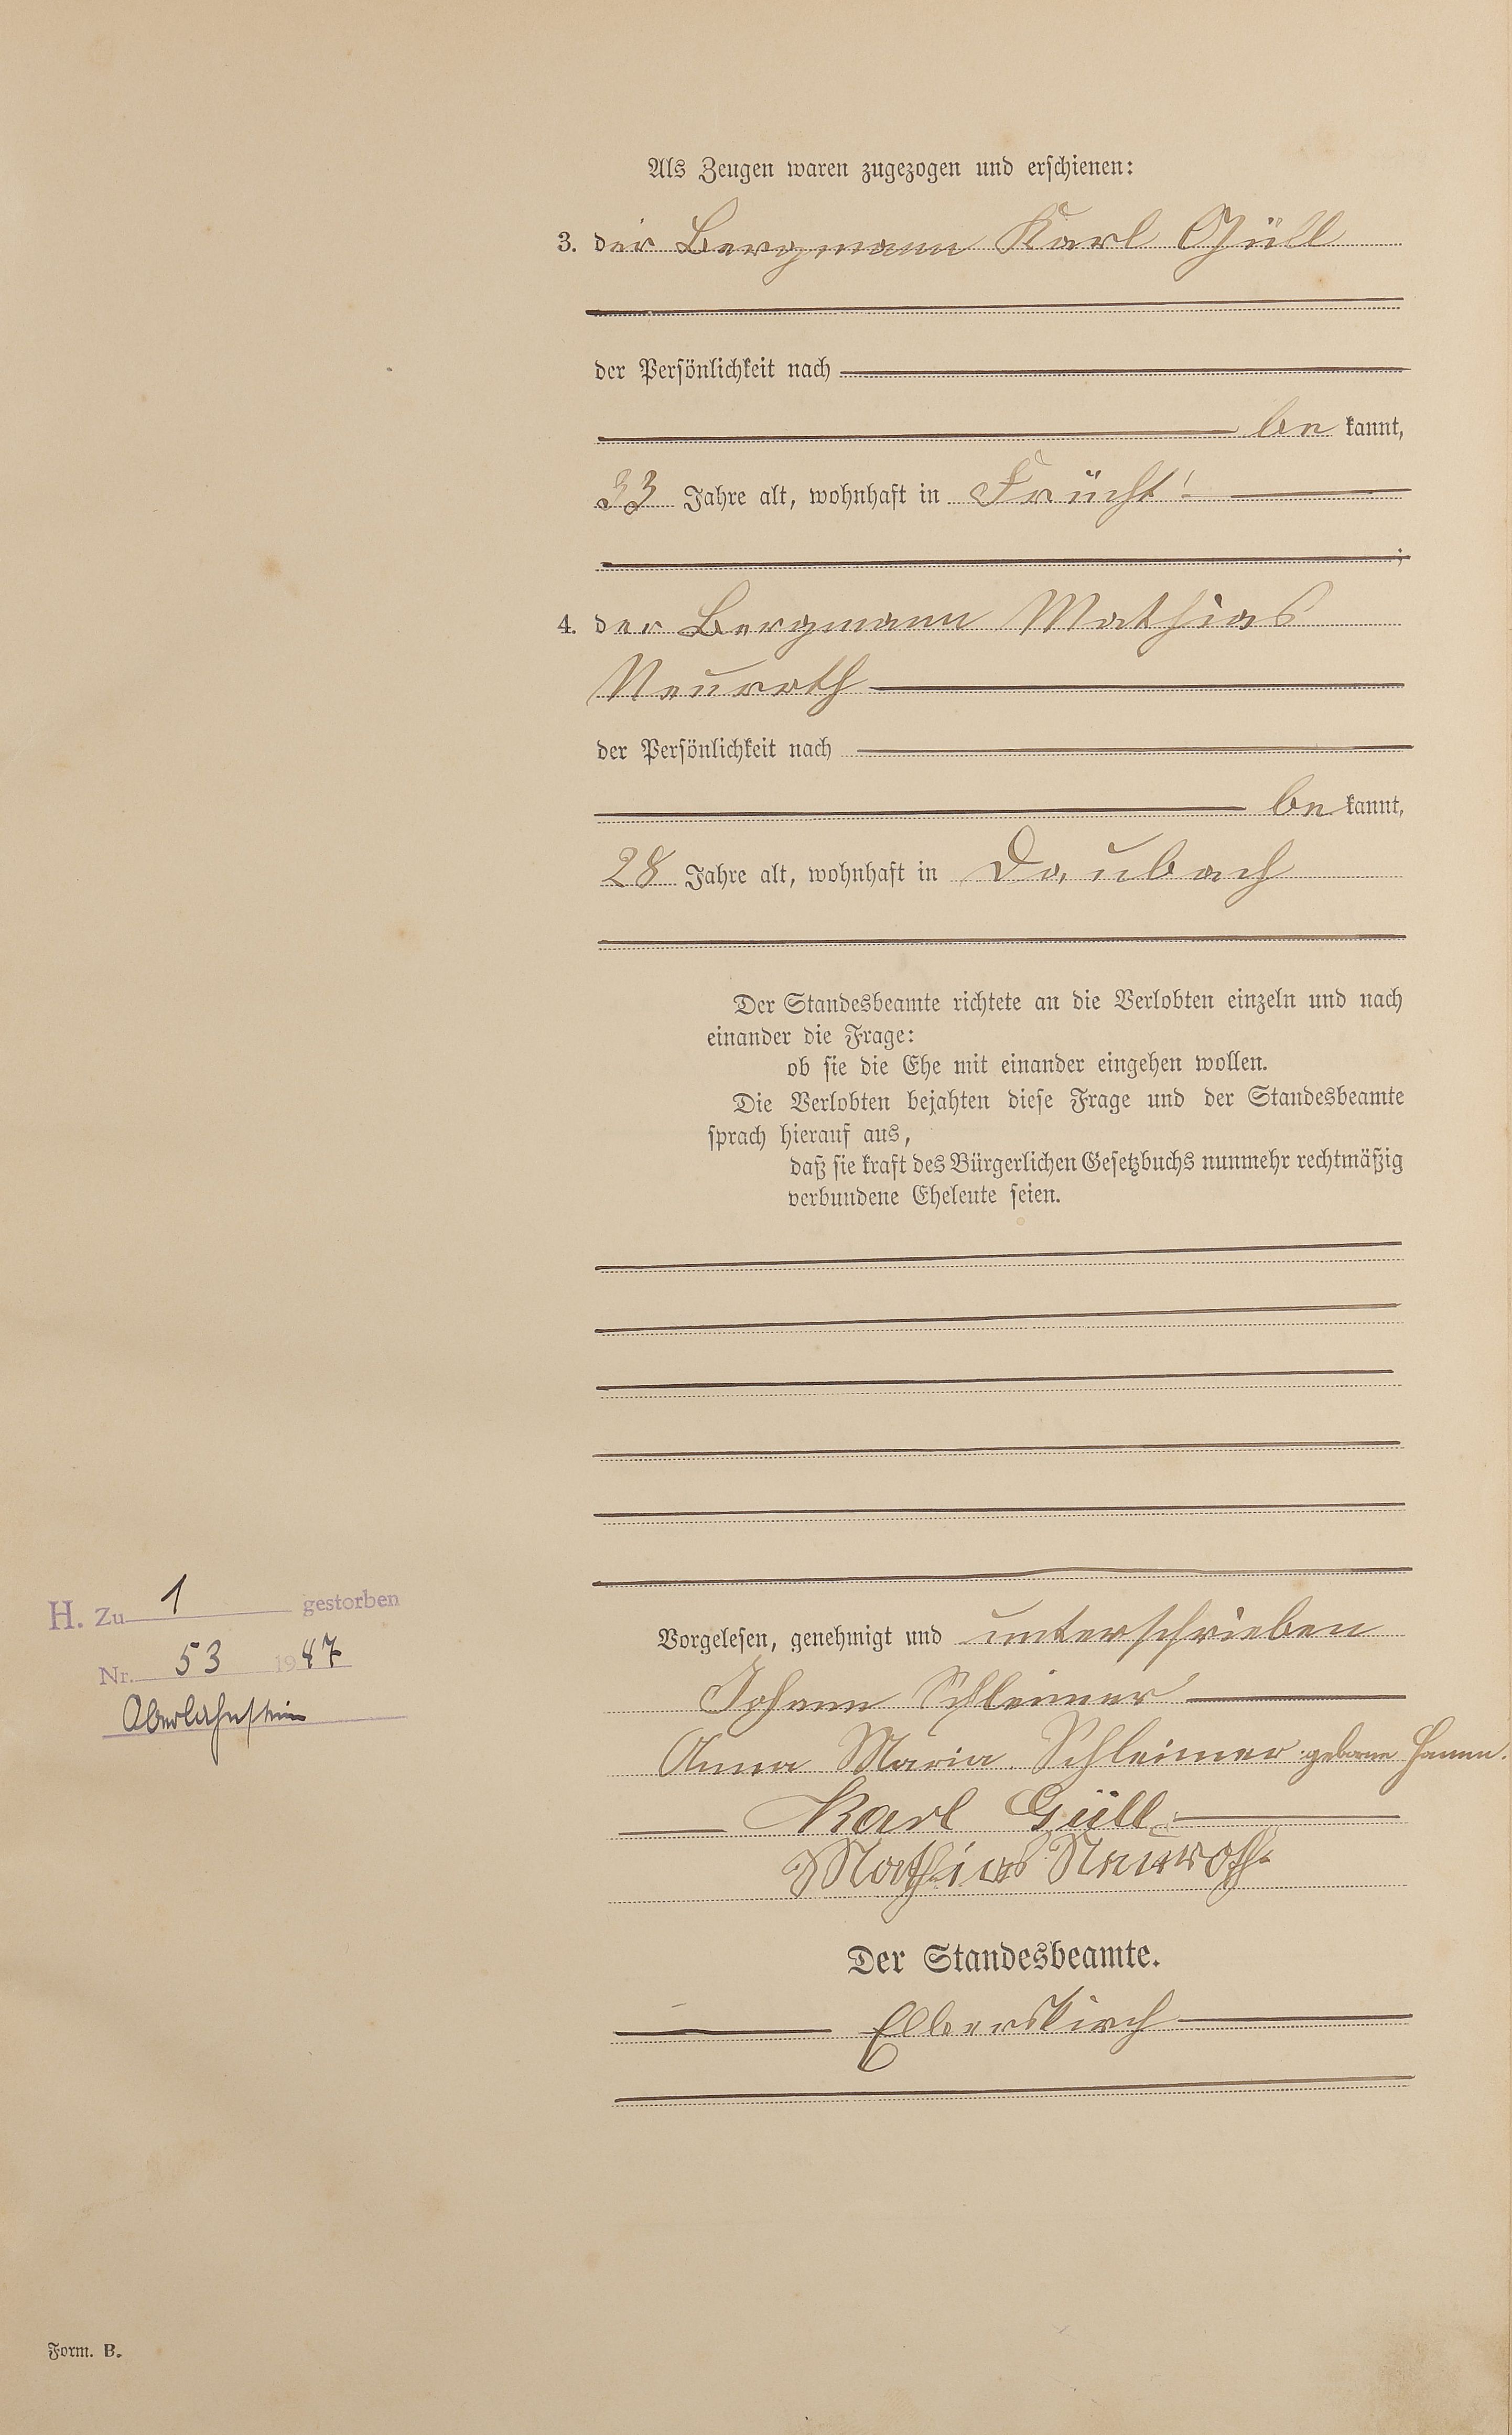 Als Zeugen waren zugezogen und erschienen:
3. der Bergmann Karl Güll
der Persönlichkeit nach
be kannt,
33 Jahre alt, wohnhaft in Frücht
;
4. der Bergmann Mathias
Neuroth
der Persönlichkeit nach
be kannt,
28 Jahre alt, wohnhaft in Daubach
Der Standesbeamte richtete an die Verlobten einzeln und nach
einander die Frage:
ob sie die Ehe mit einander eingehen wollen.
Die Verlobten bejahten diese Frage und der Standesbeamte
sprach hierauf aus,
daß sie kraft des Bürgerlichen Gesetzbuchs nunmehr rechtmäßig
verbundene Eheleute seien.
H. Zu 1 gestorben
Nr. 53 1947
Oberlahnstein
Vorgelesen, genehmigt und unterschrieben
Johann Schleimer
Anna Maria Schleimer geborne Hamm.
Karl Güll
Mathias Neuroth
Der Standesbeamte.
Elberskirch
Form. B.